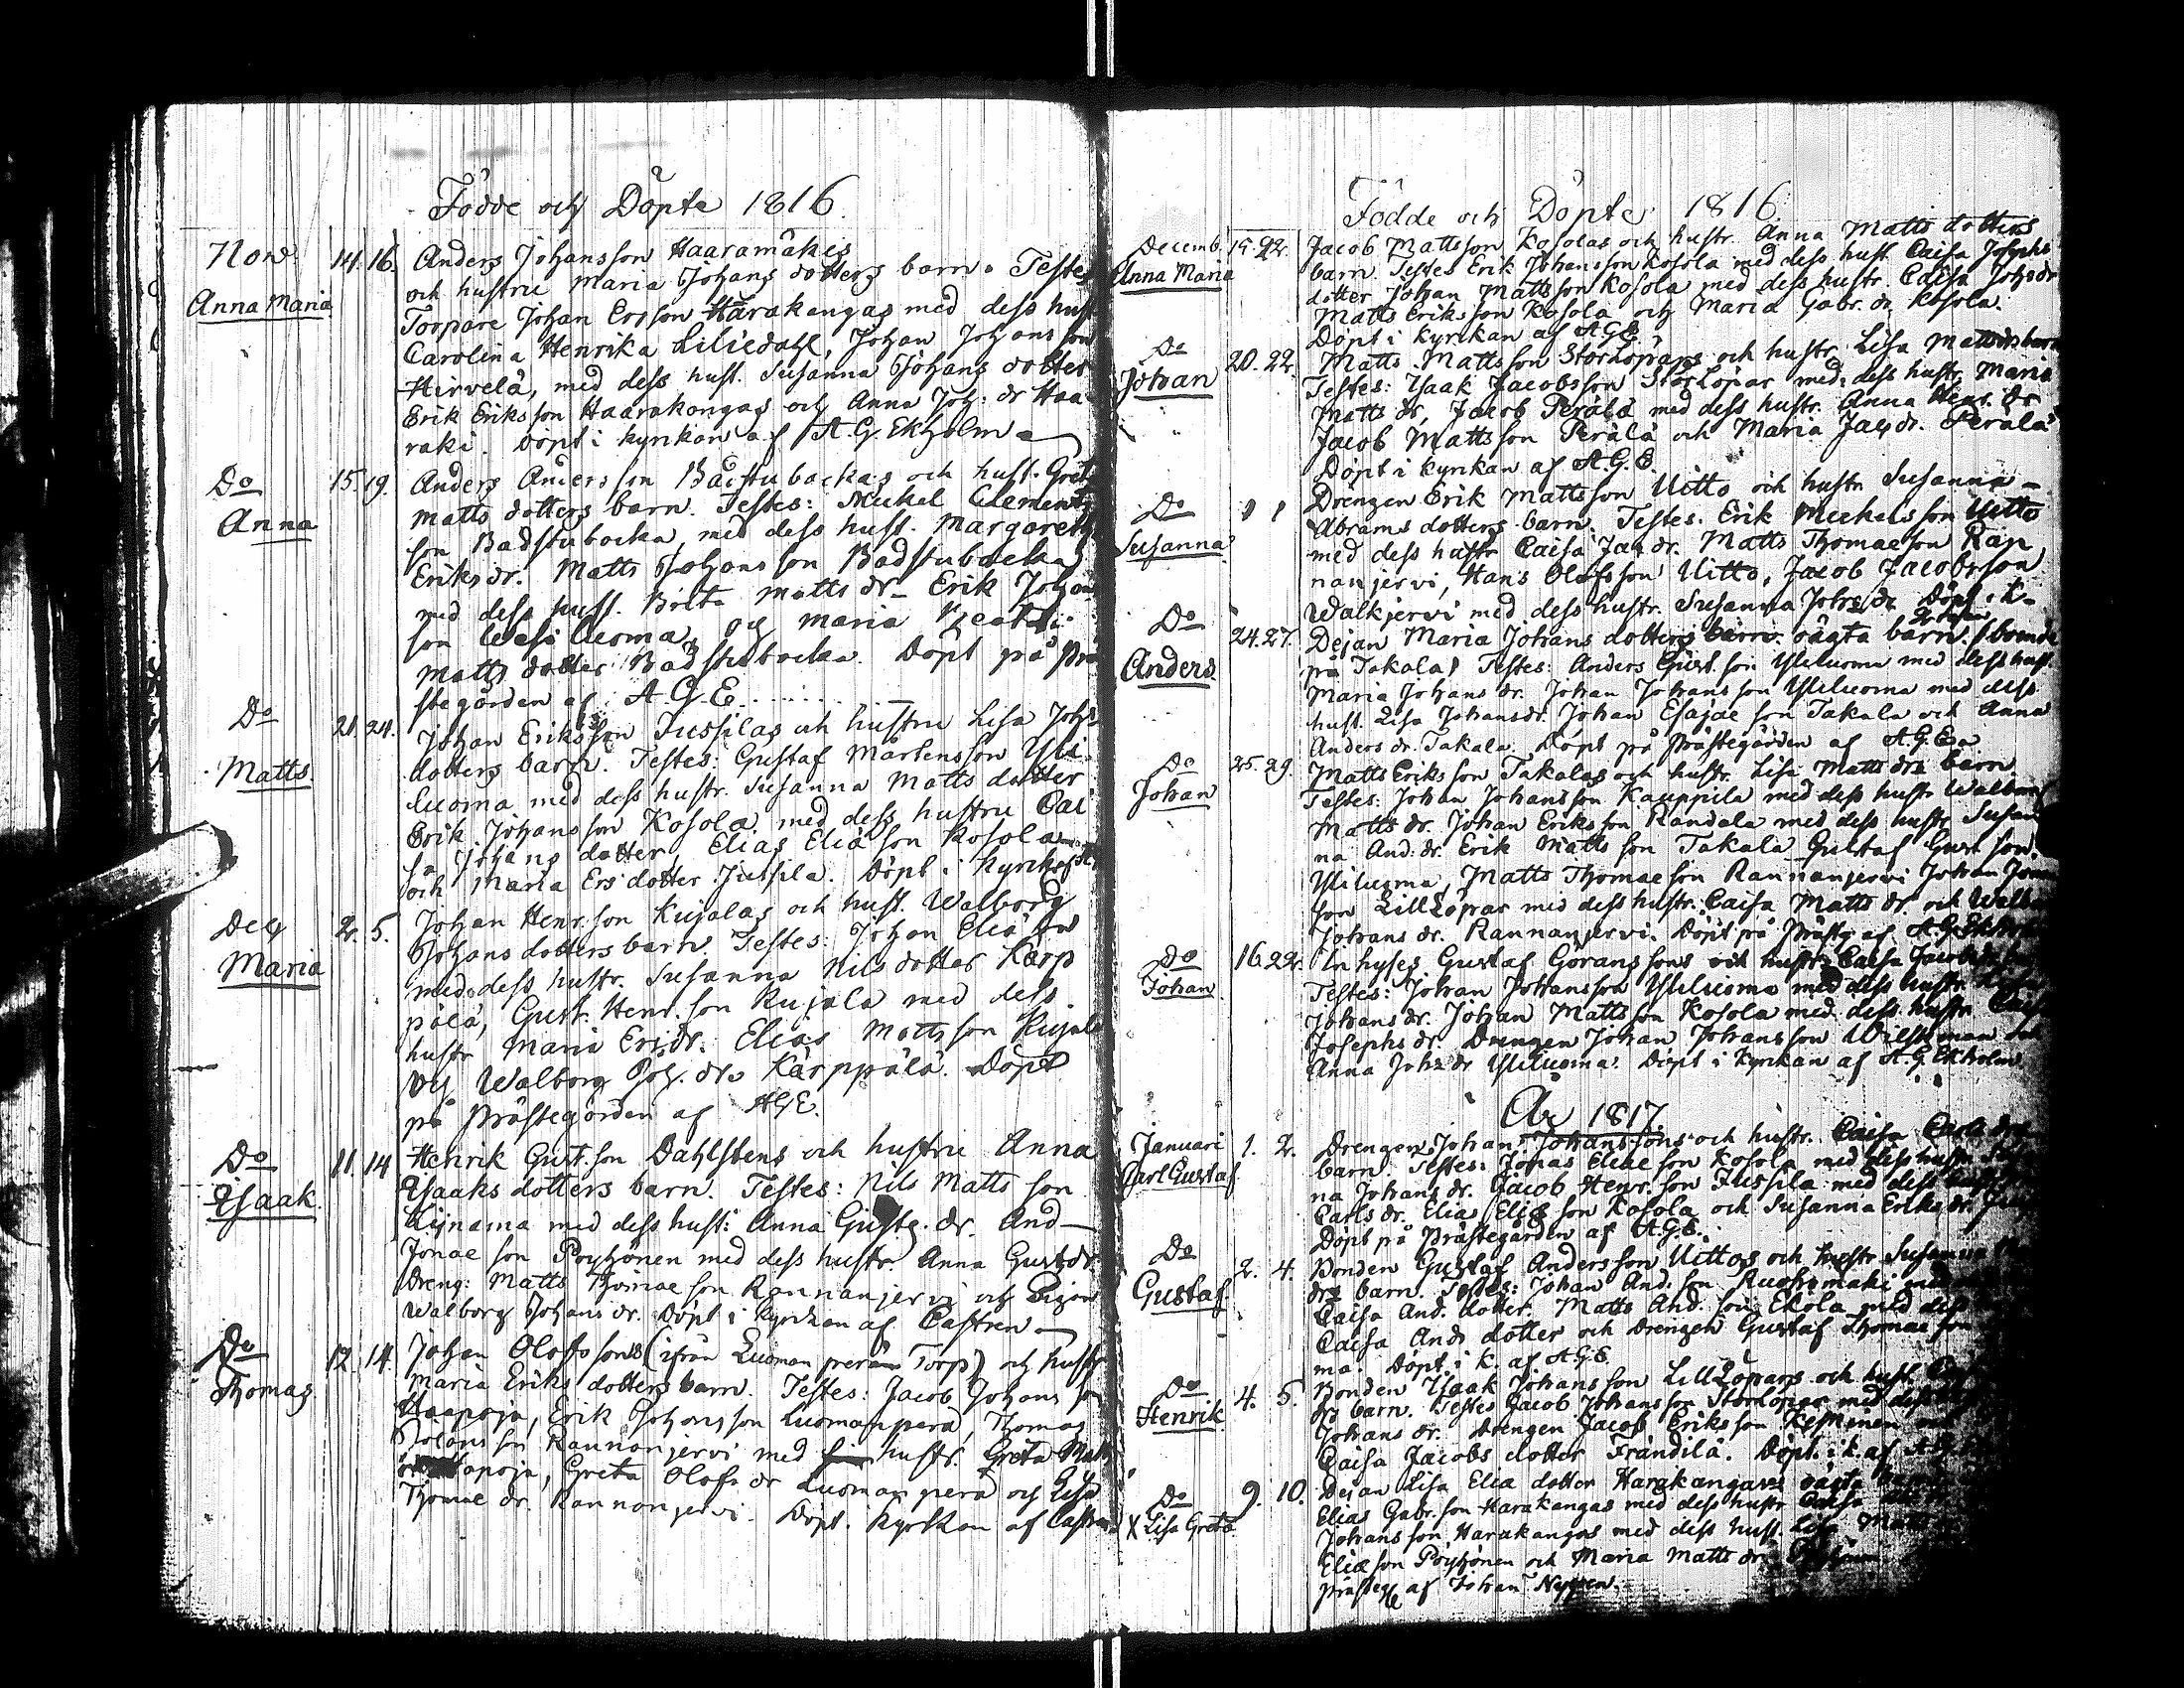 Födde och Döpte 1816.
Nov 14. 16. Anders Johansson Haaramäkis
Anna Maria och hustru Maria Johans dotters barn. Testes
Torpare Johan Ersson Harakangas med dess hust
Carolina Henrika Liliedahl, Johan Johansson
Hirvelä, med dess hust. Susanna Johans dotter
Erik Eriksson Haarakangas och Anna Joh: dr Haa-
raki. Döpt i kyrkan af A. G. Ekholm
Do 15. 19. Anders Andersson Badstubackas och hust. Greta
Anna Matts dotters barn. Testes: Mickel Clements
son Badstubacka, med dess hust. Margareta
Eriks dr. Matts Johansson Badstubacka
med dess hust. Brita Matts dr Erik Johans
son och Maria
Matts dotter Badstubacka. Döpt på Prä
stegården af A. G. E.
Do 21. 24. Johan Eriksson Jussilas och hustru Lisa Johs
Matts. dotters barn. Testes: Gustaf Mårtensson Yli-
luoma med dess hustr. Susanna Matts dotter
Erik Johansson Kosola med dess hustru Cai
sa Johans dotter, Elias Eliæ son Kosola
och Maria Ers dotter Jussila. Döpt i Kyrkan
Dec 2. 5. Johan Henr. son Kujalas och hust. Walborg
Maria Johans dotters barn. Testes: Johan Eliæ son
med dess hustr. Susanna Nils dotter Kärp
pälä, Gust. Henr. son Kujala med dess
hustr Maria Ers dr. Elias Matts son Kujala
och Walborg Joh. dr. Kärppälä. Döpt
på Prästegården af AGE.
Do 11. 14 Henrik Gust. son Dahlstens och hustru Anna
Isaak. Isaaks dotters barn. Testes: Nils Matts son
Liinama med dess hust: Anna Gust. dr. And
Jonæ son Pöyhönen med dess hustr. Anna Gust dr
Dreng: Matts Thomæ son Rannanjervi och Pigan
Walborg Johans dr. Döpt i kyrkan af Castren
Do 12. 14. Johan Olofssons (ifrån Luoman perän Torp) och hustr
Thomas Maria Eriks dotters barn. Testes: Jacob Johans son
Haapoja, Erik Johansson Luomanperä, Thomas
son Rannanjervi med hustr. Greta Matts
Greta Olofs dr Luomanperä och Lisa
Thomæ dr. Rannanjervi. Döpt i Kyrkan af Castren
Födde och Döpte 1816
Decemb. 19. 22. Jacob Mattsson Kosolas och hustr. Anna Matts dotters
Anna Maria barn. Testes Erik Johansson Kosola med dess hust Caisa Josephs
dotter Johan Mattsson Kosola med dess hustr. Caisa Johs dr
Matts Eriksson Kosola och Maria Gabr. dr. Kosola.
Döpt i kyrkan af A.G.E.
Do 20. 22. Matts Mattsson Storlopars och hustr Lisa Mattsdrs barn
Johan Testes: Isaak Jacobsson Storlopar med dess hustr. Maria
Matts dr, Jacob Perälä med dess hustr. Anna Henr. dr
Jacob Mattsson Perälä och Maria Jac. dr. Perälä
Döpt i kyrkan af A.G.E.
Do Drengen Erik Mattsson Uitto och hustr Susanna
Susanna Abrams dotters barn. Testes. Erik Mickelsson Uitto
med dess hustr Caisa Jac dr. Matts Thomæ son Ran
nanjervi, Hans Olofsson Uitto, Jacob Jacobsson
Walkjervi med dess hustr. Susanna Johs dr. Döpt i K.
Do 24. 27. Dejan Maria Johans dotters oägta barn (boende
Anders på Takala) Testes: Anders Gust. son Yliluoma med dess hust.
Maria Johans dr. Johan Johansson Yliluoma med dess
hust. Lisa Johansdr. Johan Esajæ son Takala och Anna
Anders dr. Takala. Döpt på Prästegården af A.G.E.
Do 25. 29. Matts Eriksson Takalas och hustr. Lisa Matts drs barn
Johan Testes: Johan Johansson Kauppila med dess hustr Walborg
Matts dr. Johan Eriksson Randala med dess hustr Susan
na And: dr. Erik Mattsson Takala Gustaf Gust son
Yliluoma, Matts Thomæson Rannanjervi Johan
son Lill Lopar med dess hustr. Caisa Matts dr. och
Johans dr. Rannanjervi. Döpt på Prästg af A.G. Ekholm
Do 16. 22. Inhyses Gustaf Göranssons och hustr. Caisa
Johan Testes: Johan Johansson Yliluoma med dess hustr
Johans dr. Johan Mattsson Kosola med dess hustr Caisa
Josephs dr. Drengen Johan Johansson
Anna Johs dr Yliluoma. Döpt i Kyrkan af A.G. Ekholm
År 1817.
Januari 1. 2. Drengen Johan Johanssons och hustr. Caisa Carls drs
Carl Gustaf barn. Testes: Jonas Eliæ son Kosola med dess hustr
na Johans dr. Jacob Henr. son Jussila med dess
Carls dr. Elias Eliæ son Kosola och Susanna Eriks dr.
Döpt på Prästegården af A.G.E.
Do 2. 4. Bonden Gustaf Andersson Uittos och hustr Susanna
Gustaf drs barn. Testes: Johan And: son Ruohomäki med
Caisa And. dotter. Matts And. son Ekola med dess
Caisa And: dotter och Drengen Gustaf Thomæ son
ma. Döpt i K. af A.G.E.
Do 4. 5. Bonden Isaak Johansson Lill Lopars och hust
Henrik drs barn. Testes Jacob Johansson Storlopar med dess
Johans dr. Drengen Jacob Eriksson
Caisa Jacobs dotter Frändilä. Döpt i K. af
Do 9. 10. Dejan Lisa Eliæ dotter Harakangas oägta
X Lisa Greta Elias Gabr. son Harakangas med dess hustr Caisa
Johansson Harakangas med dess hust. Lisa
Eliæson Pöyhönen och Maria Matts dr.
Prästeg af Johan